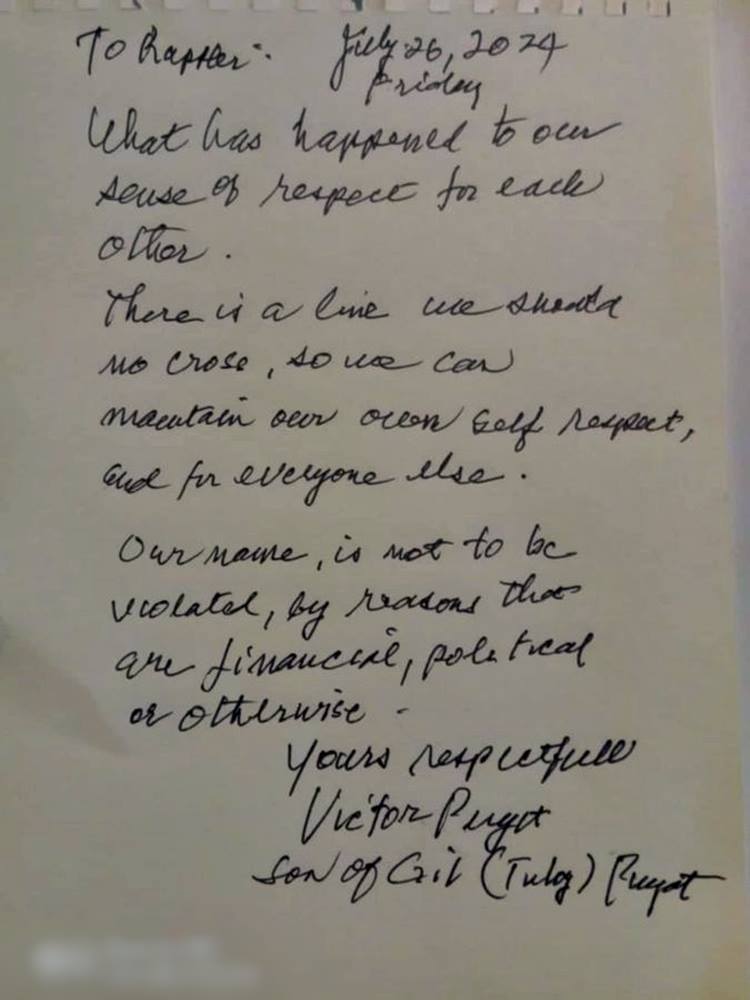 To Rappler: July 26, 2024
Friday
What has happened to our
sense of respect for each
other.
There is a line we should
no cross, so we can
maintain our own self respect,
and for everyone else.
Our name, is not to be
violated, by reasons that
are financial, political
or otherwise.
Yours respectfull
Victor Puyat
son of Gil (Tuby) Puyat